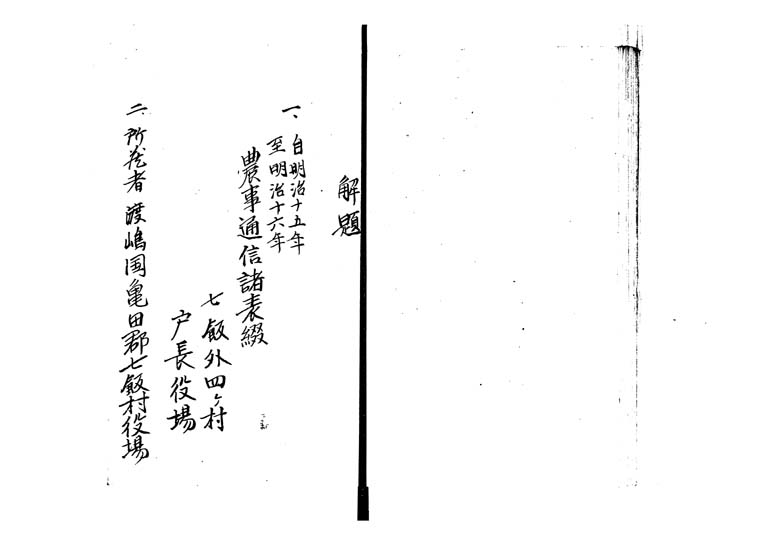 解題
一、自明治十五年
至明治十六年
農事通信諸表綴
七飯外四ヶ村
戸長役場
二、所蔵者 渡嶋国亀田郡七飯村役場